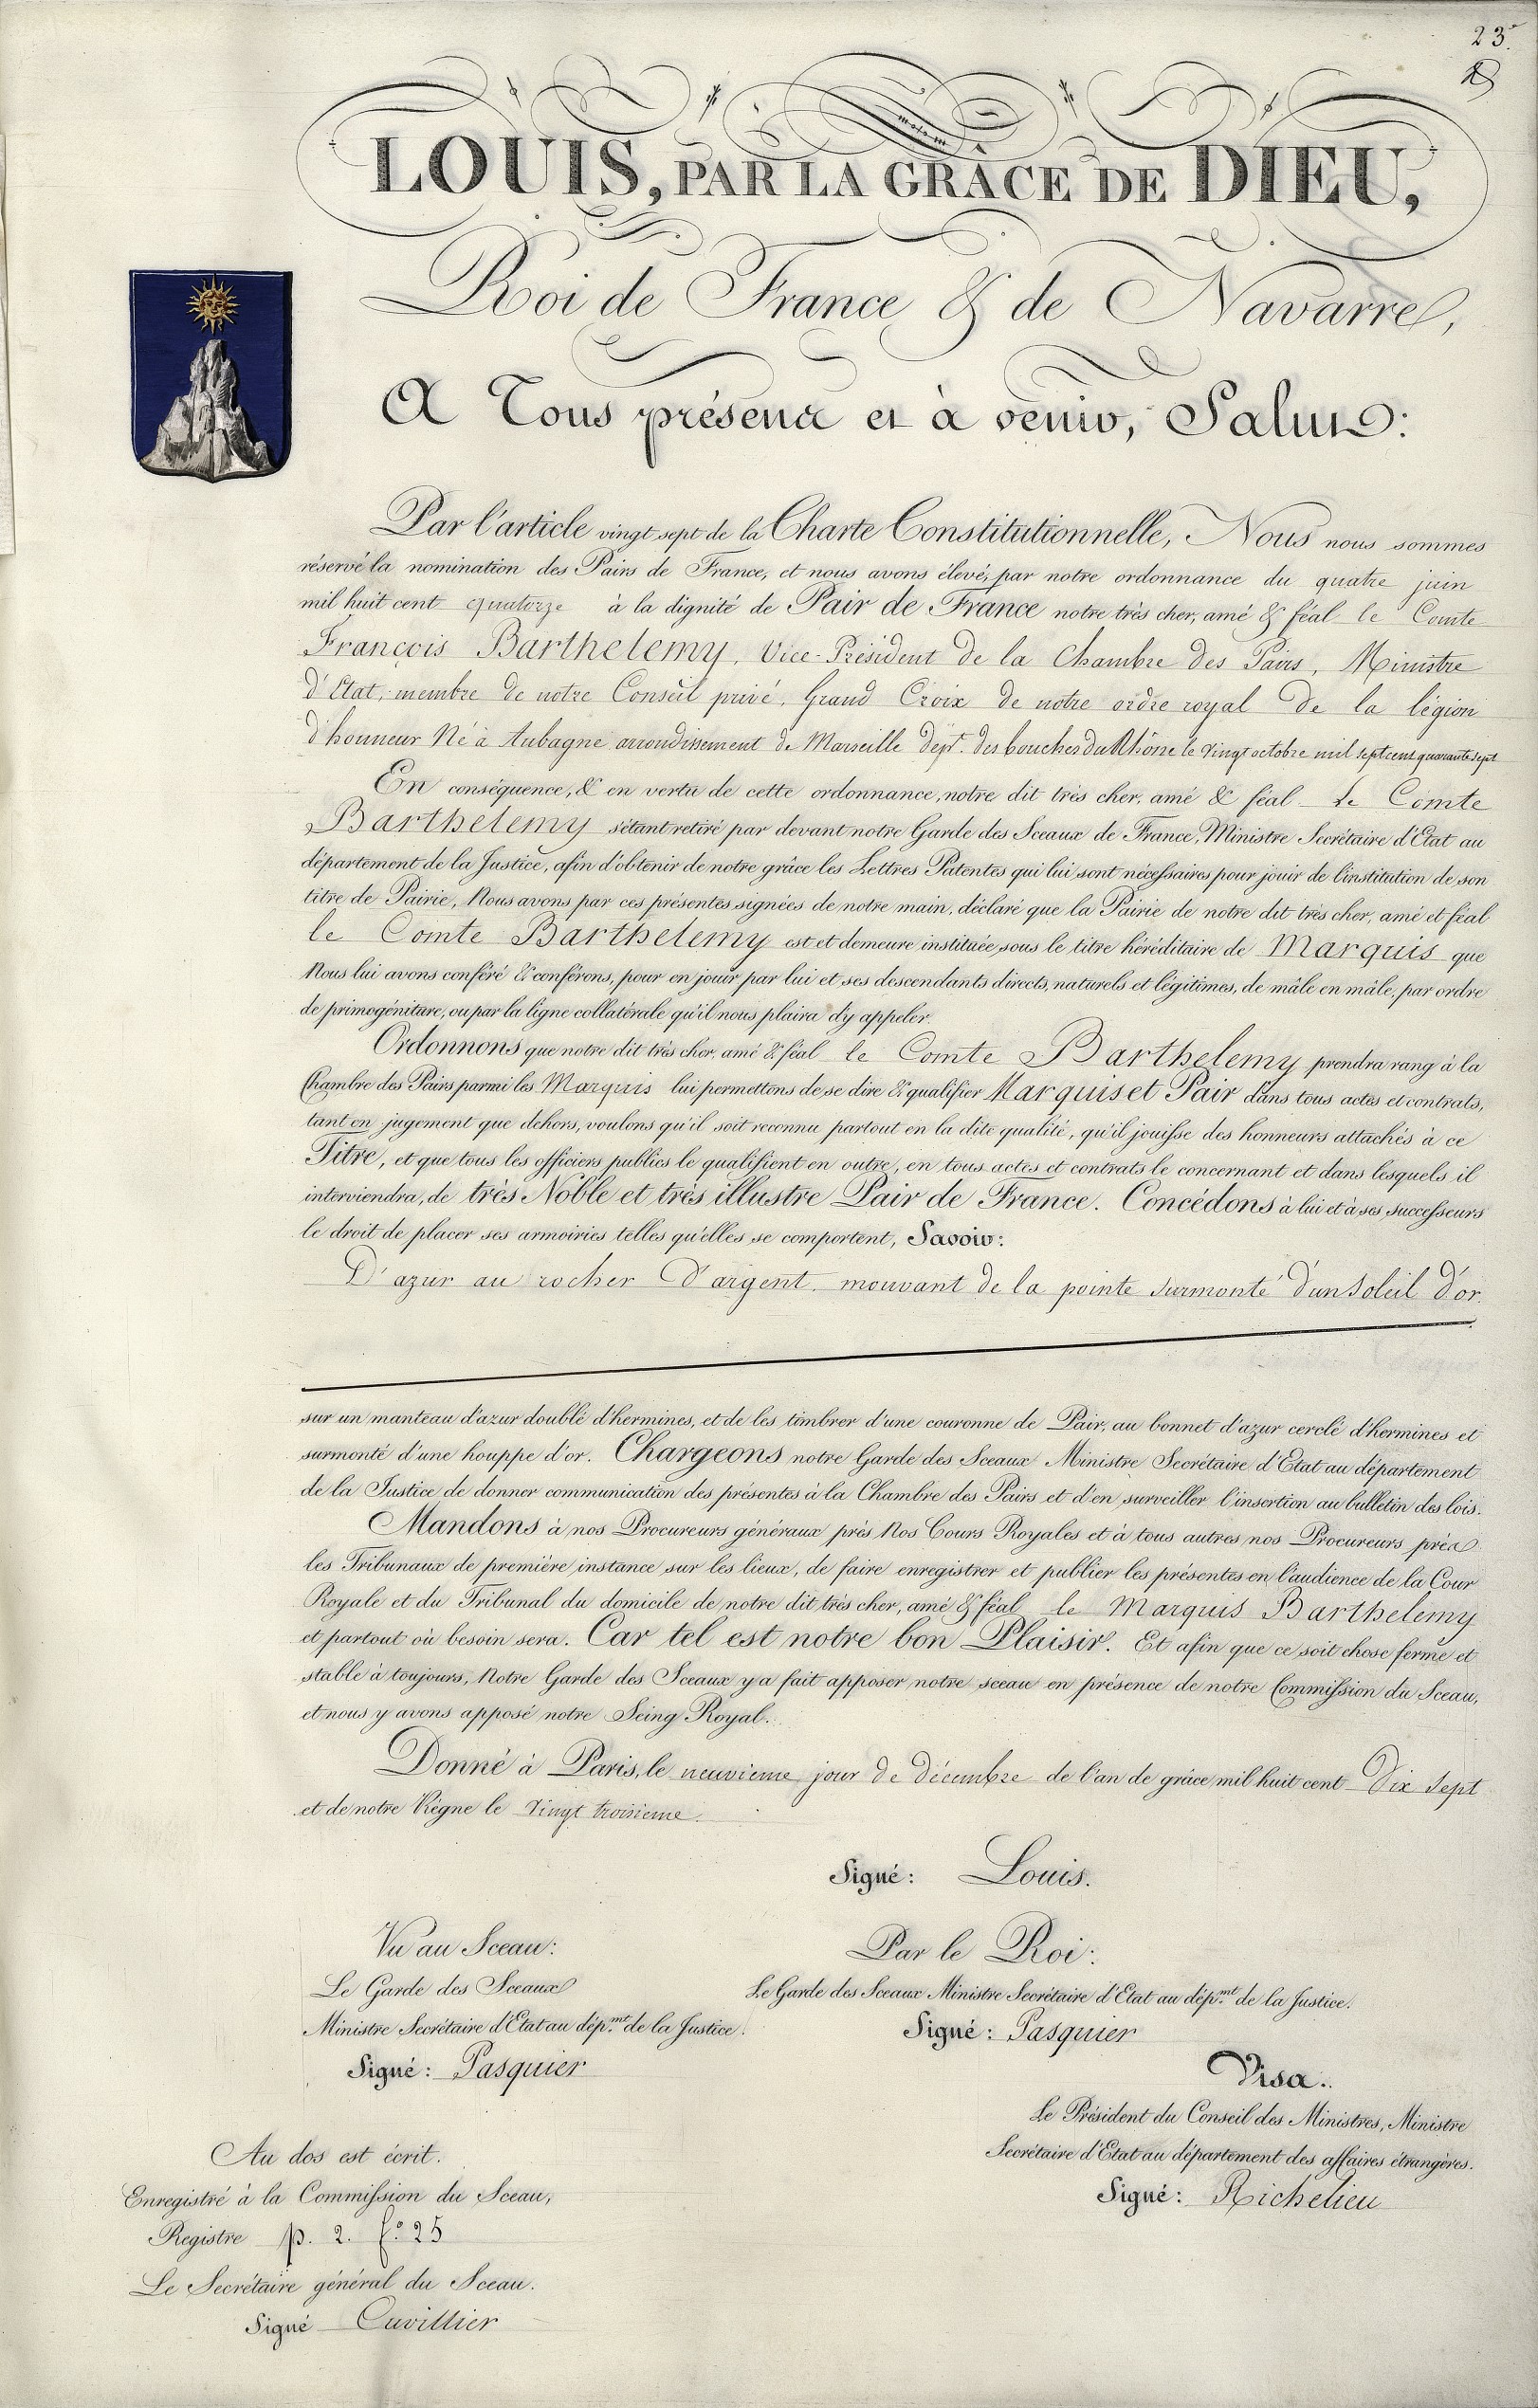 23.
LOUIS, PAR LA GRÂCE DE DIEU,
Roi de France & de Navarre,
A Tous présens et à venir, Salut:
Par l'article vingt sept de la Charte Constitutionnelle, Nous nous sommes
réservé la nomination des Pairs de France, et nous avons élevé, par notre ordonnance du quatre juin
mil huit cent quatorze à la dignité de Pair de France notre très cher, amé & féal le Comte
François Barthelemy, Vice-Président de la Chambre des Pairs, Ministre
d'Etat, membre de notre Conseil privé, Grand Croix de notre ordre royal de la légion
d'honneur Né à Aubagne arrondissement de Marseille dépt. des bouches du Rhône le vingt octobre mil sept cent quarante sept
En conséquence, & en vertu de cette ordonnance, notre dit très cher, amé & féal Le Comte
Barthelemy s'étant retiré par devant notre Garde des Sceaux de France, Ministre Secrétaire d'Etat au
département de la Justice, afin d'obtenir de notre grâce les Lettres Patentes qui lui sont nécessaires pour jouir de l'institution de son
titre de Pairie, Nous avons par ces présentes signées de notre main, déclaré que la Pairie de notre dit très cher, amé et féal
le Comte Barthelemy est et demeure instituée sous le titre héréditaire de Marquis que
Nous lui avons conféré & conférons, pour en jouir par lui et ses descendants directs, naturels et légitimes, de mâle en mâle, par ordre
de primogéniture, ou par la ligne collatérale qu'il nous plaira d'y appeler.
Ordonnons que notre dit très cher, amé & féal le Comte Barthelemy prendra rang à la
Chambre des Pairs parmi les Marquis lui permettons de se dire & qualifier Marquis et Pair dans tous actes et contrats,
tant en jugement que dehors, voulons qu'il soit reconnu partout en la dite qualité, qu'il jouisse des honneurs attachés à ce
Titre, et que tous les officiers publics le qualifient en outre, en tous actes et contrats le concernant et dans lesquels il
interviendra, de très Noble et très illustre Pair de France. Concédons à lui et à ses successeurs
le droit de placer ses armoiries telles qu'elles se comportent, Savoir:
D'azur au rocher D'argent mouvant de la pointe surmonté d'un Soleil d'or.
sur un manteau d'azur doublé d'hermines, et de les timbrer d'une couronne de Pair, au bonnet d'azur cerclé d'hermines et
surmonté d'une houppe d'or. Chargeons notre Garde des Sceaux Ministre Secrétaire d'Etat au département
de la Justice de donner communication des présentes à la Chambre des Pairs et d'en surveiller l'insertion au bulletin des lois.
Mandons à nos Procureurs généraux près Nos Cours Royales et à tous autres nos Procureurs près
les Tribunaux de première instance sur les lieux, de faire enregistrer et publier les présentes en l'audience de la Cour
Royale et du Tribunal du domicile de notre dit très cher, amé & féal le Marquis Barthelemy
et partout où besoin sera. Car tel est notre bon Plaisir. Et afin que ce soit chose ferme et
stable à toujours, Notre Garde des Sceaux y a fait apposer notre sceau en présence de notre Commission du Sceau,
et nous y avons apposé notre Seing Royal.
Donné à Paris, le neuvieme jour de décembre de l'an de grâce mil huit cent Dix sept
et de notre Règne le vingt troisieme.
Signé: Louis.
Vu au Sceau:
Le Garde des Sceaux
Ministre Secrétaire d'Etat au dép.mt de la Justice.
Signé: Pasquier
Par le Roi:
Le Garde des Sceaux Ministre Secrétaire d'Etat au dép.mt de la Justice.
Signé: Pasquier
Visa:
Le Président du Conseil des Ministres, Ministre
Secrétaire d'Etat au département des affaires étrangères.
Signé: Richelieu
Au dos est écrit.
Enregistré à la Commission du Sceau,
Registre p. 2. f.o 25
Le Secrétaire général du Sceau.
Signé Cuvillier